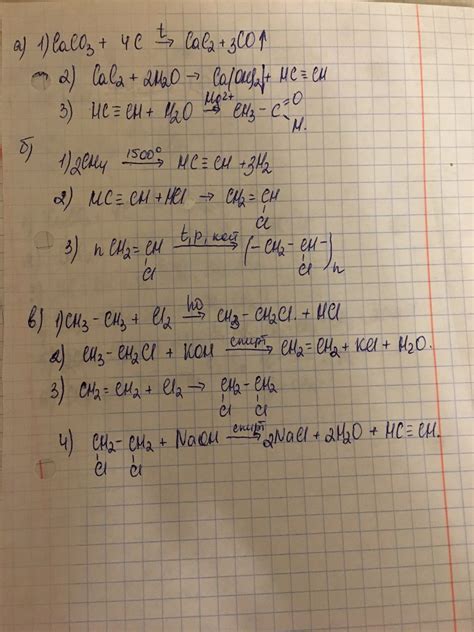 а) 1) CaCO3 + 4C t→ CaC2 + 3CO↑
2) CaC2 + 2H2O → Ca(OH)2 + HC≡CH
3) HC≡CH + H2O Hg2+→ CH3-C
O
H.
б)
1) 2CH4 1500°→ HC≡CH + 3H2
2) HC≡CH + HCl → CH2=CH
Cl
3) nCH2=CH t,p,кат→ (-CH2-CH-)n
Cl Cl
в) 1) CH3-CH3 + Cl2 hν→ CH3-CH2Cl. + HCl
2) CH3-CH2Cl + KOH спирт→ CH2=CH2 + KCl + H2O.
3) CH2=CH2 + Cl2 → CH2-CH2
Cl Cl
4) CH2-CH2 + NaOH спирт→ 2NaCl + 2H2O + HC≡CH.
Cl Cl